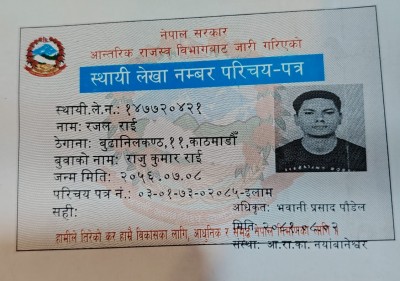 नेपाल सरकार
आन्तरिक राजस्व विभागबाट जारी गरिएको
स्थायी लेखा नम्बर परिचय-पत्र
स्थायी.ले.न.: १४७७२०४२१
नाम: रजल राई
ठेगाना: बुढानिलकण्ठ,११,काठमाडौँ
बुवाको नाम: राजु कुमार राई
जन्म मिति: २०५६.०७.०८
परिचय पत्र नं.: ०३-०१-७३-०२०८५-इलाम
सही:
अधिकृत: भवानी प्रसाद पौडेल
मिति:
हामीले तिरेको कर हाम्रै विकासका लागि, आधुनिक र
संस्था: आ.रा.का. नयाँबानेश्वर